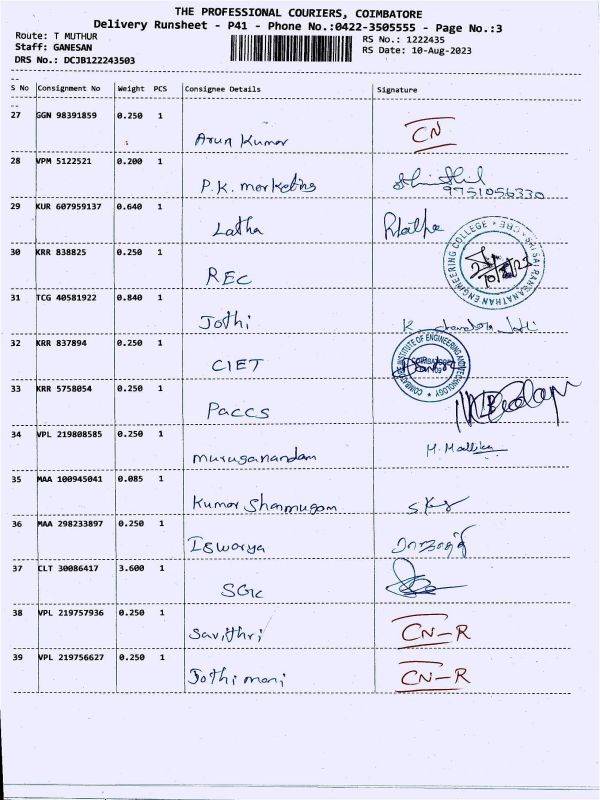 THE PROFESSIONAL COURIERS, COIMBATORE
Delivery Runsheet - P41 - Phone No.:0422-3505555 - Page No.:3
Route: T MUTHUR
RS No.: 1222435
Staff: GANESAN
RS Date: 10-Aug-2023
DRS No.: DCJB122243503
S No Consignment No Weight PCS Consignee Details Signature
27 GGN 98391859 0.250 1
Arun Kumar CN
28 VPM 5122521 0.200 1
P.K. marketing
9751056330
29 KUR 607959137 0.640 1
Latha
30 KRR 838825 0.250 1
REC
SRI SAI RANGANATHAN ENGINEERING COLLEGE * CBE *
31 TCG 40581922 0.840 1
Jothi
32 KRR 837894 0.250 1
CIET
COIMBATORE INSTITUTE OF ENGINEERING AND TECHNOLOGY *
33 KRR 5758054 0.250 1
Paccs
34 VPL 219808585 0.250 1
muruganandam M. Mallika
35 MAA 100945041 0.085 1
Kumar Shanmugam
36 MAA 298233897 0.250 1
Iswarya
37 CLT 30086417 3.600 1
38 VPL 219757936 0.250 1
Savithri CN-R
39 VPL 219756627 0.250 1
Jothimani CN-R